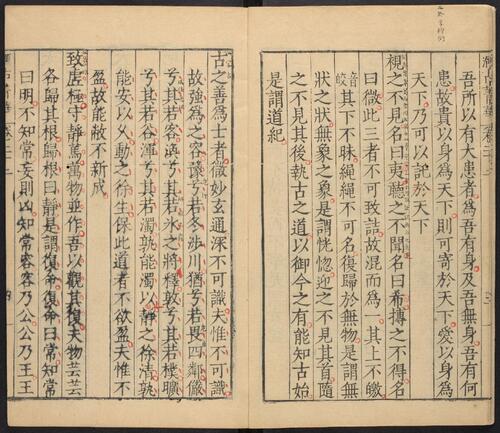 吾所以有大患者為吾有身及吾無身吾有何
患故貴以身為天下則可寄於天下愛以身為
天下乃可以託於天下
視之不見名曰夷聽之不聞名曰希搏之不得名
曰微此三者不可致詰故混而為一其上不皦
音皎
其下不昧繩繩不可名復歸於無物是謂無
狀之狀無象之象是謂恍惚迎之不見其首隨
之不見其後執古之道以御今之有能知古始
是謂道紀
古之善為士者微妙玄通深不可識夫惟不可識
故強為之容豫兮若冬涉川猶兮若畏四鄰儼
兮其若客渙兮若氷之將釋敦兮其若樸曠
兮其若谷渾兮其若濁孰能濁以靜之徐清孰
能安以久動之徐生保此道者不欲盈夫惟不
盈故能敝不新成
致虛極守靜篤萬物並作吾以觀其復夫物芸芸
各歸其根歸根曰靜是謂復命復命曰常知常
曰明不知常妄則凶知常容容乃公公乃王王